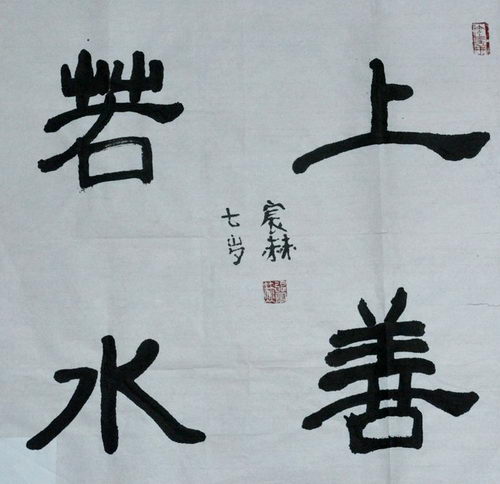 上善
若水
宸赫
七岁